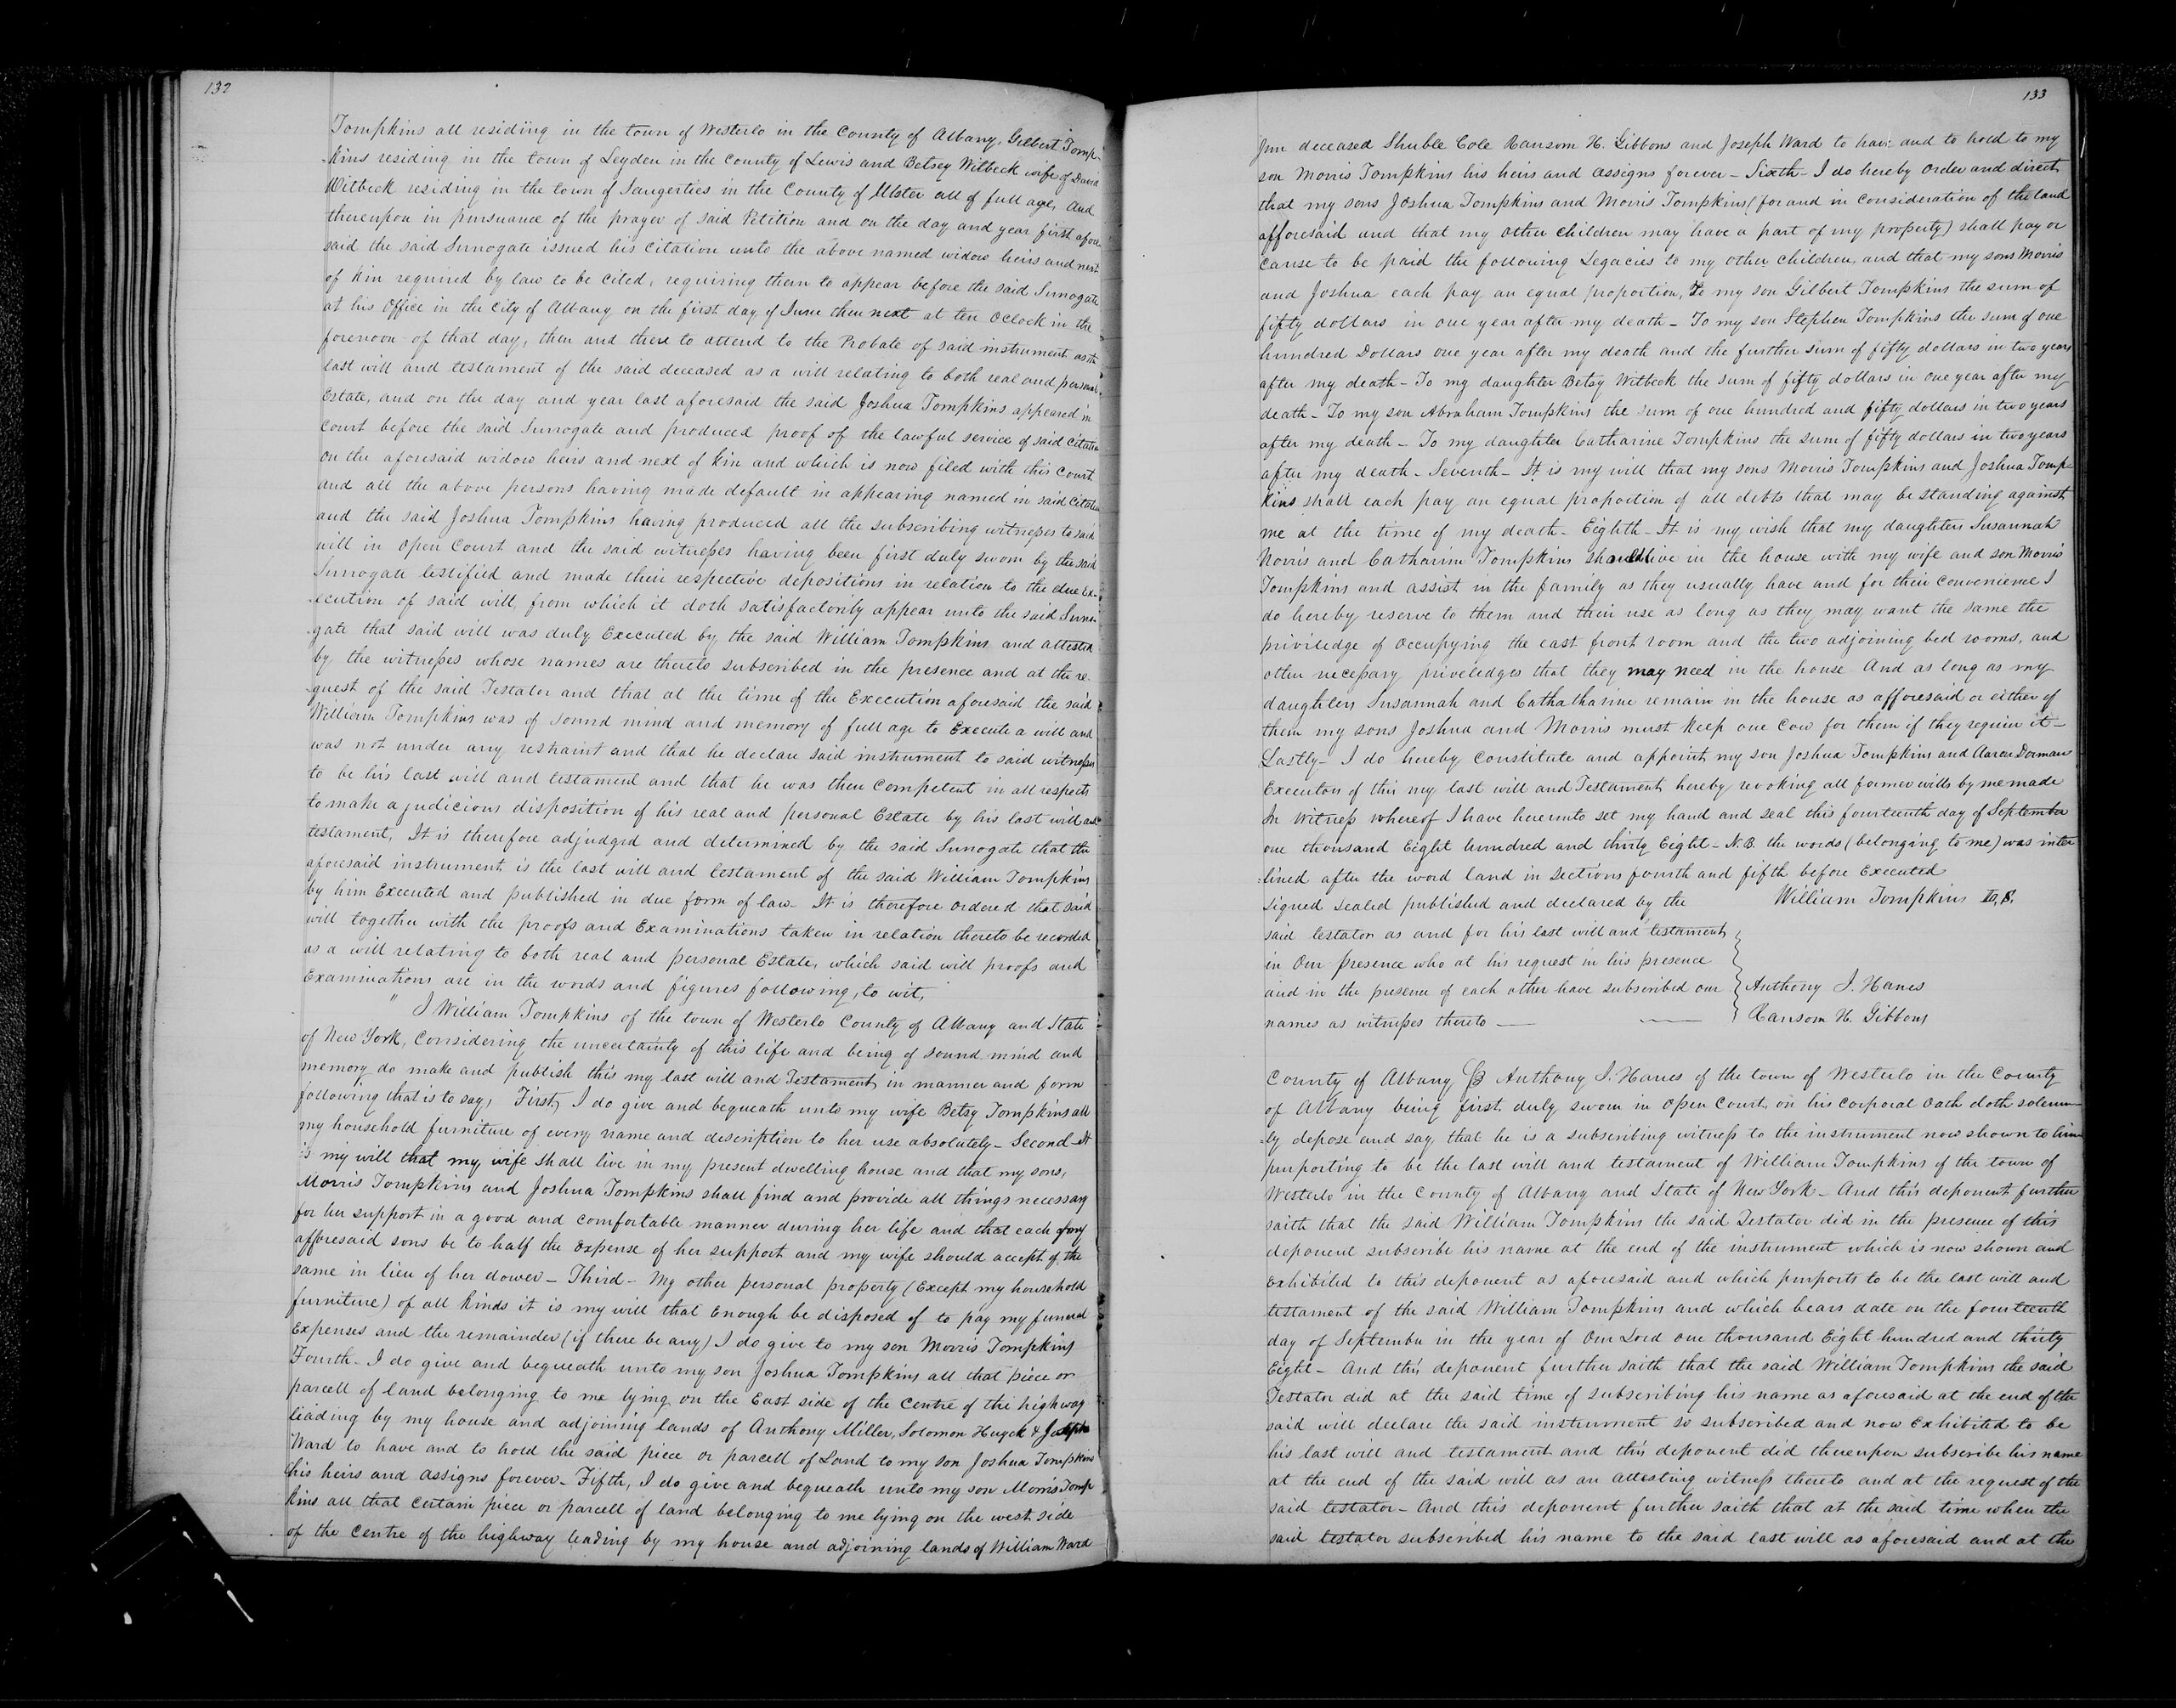 132
Tompkins all residing in the town of Westerlo in the County of Albany, Gilbert Tomp-
-kins residing in the town of Leyden in the County of Lewis and Betsey Witbeck wife of David
Witbeck residing in the town of Saugerties in the County of Ulster all of full age, And
thereupon in pursuance of the prayer of said Petition and on the day and year first afore
said the said Surrogate issued his Citation unto the above named widow heirs and next
of kin required by law to be cited, requiring them to appear before the said Surrogate
at his Office in the City of Albany on the first day of June then next at ten Oclock in the
forenoon of that day, then and there to attend to the Probate of said instrument as the
last will and testament of the said deceased as a will relating to both real and personal
Estate, and on the day and year last aforesaid the said Joshua Tompkins appeared in
Court before the said Surrogate and produced proof of the lawful service of said Citation
on the aforesaid widow heirs and next of kin and which is now filed with this Court
and all the above persons having made default in appearing named in said Citation
and the said Joshua Tompkins having produced all the subscribing witnesses to said
will in Open Court and the said witnesses having been first duly sworn by the said
Surrogate testified and made their respective depositions in relation to the due Ex-
-ecution of said will, from which it doth satisfactorily appear unto the said Surro-
-gate that said will was duly Executed by the said William Tompkins and attested
by the witnesses whose names are thereto subscribed in the presence and at the re-
-quest of the said Testator and that at the time of the Execution aforesaid the said
William Tompkins was of sound mind and memory of full age to Execute a will and
was not under any restraint and that he declare said instrument to said witnesses
to be his last will and testament and that he was then Competent in all respects
to make a judicious disposition of his real and personal Estate by his last will and
testament, It is therefore adjudged and determined by the said Surrogate that the
aforesaid instrument is the last will and testament of the said William Tompkins
by him Executed and published in due form of law. It is therefore ordered that said
will together with the proofs and Examinations taken in relation thereto be recorded
as a will relating to both real and personal Estate, which said will proofs and
Examinations are in the words and figures following, to wit,
" I William Tompkins of the town of Westerlo County of Albany and State
of New York, Considering the uncertainty of this life and being of sound mind and
memory do make and publish this my last will and Testament in manner and form
following that is to say, First, I do give and bequeath unto my wife Betsy Tompkins all
my household furniture of every name and description to her use absolutely – Second – It
is my will that my wife shall live in my present dwelling house and that my sons,
Morris Tompkins and Joshua Tompkins shall find and provide all things necessary
for her support in a good and comfortable manner during her life and that each of my
afforesaid sons be to half the Expense of her support and my wife should accept of the
same in lieu of her dower – Third – My other personal property (Except my household
furniture) of all kinds it is my will that Enough be disposed of to pay my funeral
Expenses and the remainder (if there be any) I do give to my son Morris Tompkins
Fourth – I do give and bequeath unto my son Joshua Tompkins all that piece or
parcell of land belonging to me lying on the East side of the Centre of the highway
leading by my house and adjoining lands of Anthony Miller, Solomon Huyck & Joseph
Ward to have and to hold the said piece or parcell of Land to my son Joshua Tompkins
his heirs and assigns forever – Fifth, I do give and bequeath unto my son Morris Tomp
kins all that certain piece or parcell of land belonging to me lying on the west side
of the Centre of the highway leading by my house and adjoining lands of William Ward
133
Jun deceased Shuble Cole Ransom H. Gibbons and Joseph Ward to have and to hold to my
son Morris Tompkins his heirs and assigns forever – Sixth – I do hereby Order and direct
that my sons Joshua Tompkins and Morris Tompkins (for and in consideration of the land
afforesaid and that my other children may have a part of my property) shall pay or
cause to be paid the following Legacies to my other children, and that my sons Morris
and Joshua each pay an equal proportion, To my son Gilbert Tompkins the sum of
fifty dollars in one year after my death – To my son Stephen Tompkins the sum of one
hundred Dollars one year after my death and the further sum of fifty dollars in two years
after my death – To my daughter Betsy Witbeck the sum of fifty dollars in one year after my
death – To my son Abraham Tompkins the sum of one hundred and fifty dollars in two years
after my death – To my daughter Catharine Tompkins the sum of fifty dollars in two years
after my death – Seventh – It is my will that my sons Morris Tompkins and Joshua Tomp-
kins shall each pay an equal proportion of all debts that may be standing against
me at the time of my death – Eighth – It is my wish that my daughters Susannah
Norris and Catharine Tompkins should live in the house with my wife and son Morris
Tompkins and assist in the family as they usually have and for their convenience I
do hereby reserve to them and their use as long as they may want the same the
priviledge of Occupying the east front room and the two adjoining bed rooms, and
other necessary priveledges that they may need in the house And as long as my
daughters Susannah and Catha tharine remain in the house as afforesaid or either of
them my sons Joshua and Morris must keep one Cow for them if they require it –
Lastly – I do hereby Constitute and appoint my son Joshua Tompkins and Aaron Dorman
Executors of this my last will and Testament hereby revoking all former wills by me made
In witness whereof I have hereunto set my hand and seal this fourteenth day of September
one thousand Eight hundred and thirty Eight – N.B. the words (belonging to me) was inter
lined after the word land in sections fourth and fifth before Executed
signed sealed published and declared by the William Tompkins L.S.
said testator as and for his last will and testament
in Our presence who at his request in his presence
and in the presence of each other have subscribed our Anthony J. Hanes
names as witnesses thereto — — Ransom H. Gibbons
County of Albany SS Anthony J. Hanes of the town of Westerlo in the County
of Albany being first duly sworn in Open Court on his corporal Oath doth solemn-
-ly depose and say, that he is a subscribing witness to the instrument now shown to him
purporting to be the last will and testament of William Tompkins of the town of
Westerlo in the County of Albany and State of New York – And this deponent further
saith that the said William Tompkins the said Testator did in the presence of this
deponent subscribe his name at the end of the instrument which is now shown and
exhibited to this deponent as aforesaid and which purports to be the last will and
testament of the said William Tompkins and which bears date on the fourteenth
day of September in the year of Our Lord one thousand Eight hundred and thirty
Eight – And this deponent further saith that the said William Tompkins the said
Testator did at the said time of subscribing his name as aforesaid at the end of the
said will declare the said instrument so subscribed and now Exhibited to be
his last will and testament and this deponent did thereupon subscribe his name
at the end of the said will as an attesting witness thereto and at the request of the
said testator – And this deponent further saith that at the said time when the
said testator subscribed his name to the said last will as aforesaid and at the